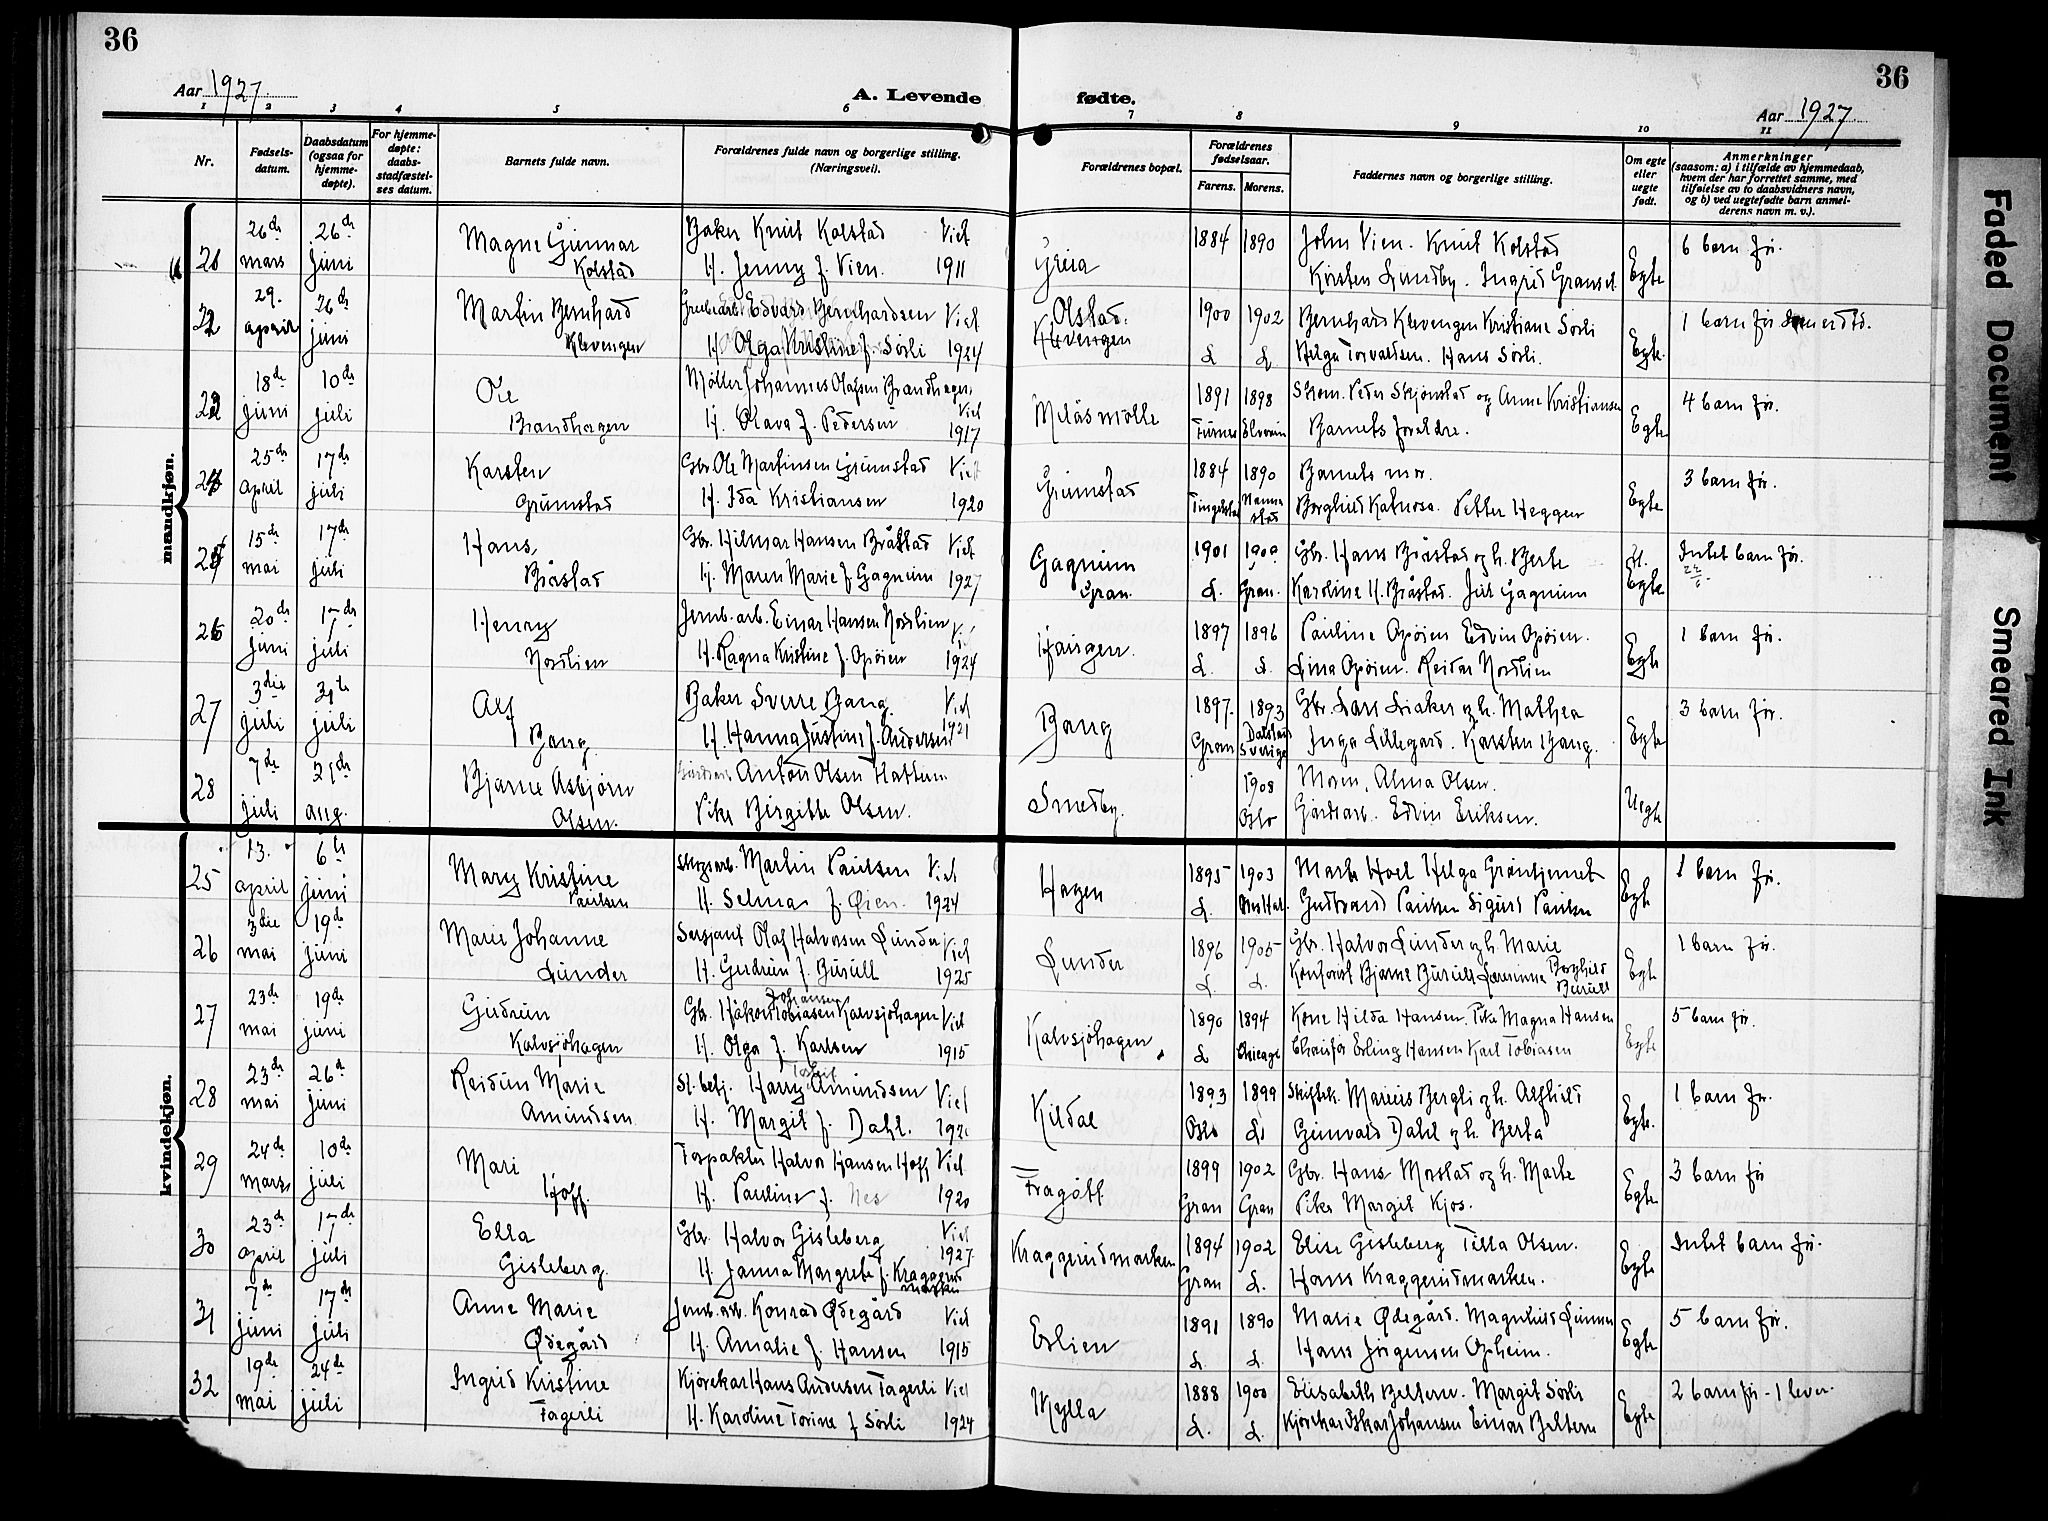 36
36
Aar 1927.
A. Levende
fødte.
Aar 1927.
1 2 3 4 5 6 7 8 9 10 11
Nr.
Fødsels-
datum.
Daabsdatum
(ogsaa for
hjemme-
døpte).
For hjemme-
døpte:
daabs-
stadfæstel-
ses datum.
Barnets fulde navn.
Forældrenes fulde navn og borgerlige stilling.
(Næringsvei).
Forældrenes bopæl.
Forældrenes
fødselsaar.
Farens. Morens.
Faddernes navn og borgerlige stilling.
Om egte
eller
uegte
født.
Anmerkninger
(saasom: a) i tilfælde av hjemmedaab,
hvem der har forrettet samme, med
tilføielse av to daabsvidners navn,
og b) ved uegtefødte barn anmel-
derens navn m. v.).
mandkjøn.
21 26de 26de Magne Gunnar Baker Knut Kolstad Viet Greia 1884 1890 John Vien. Knut Kolstad Egte 6 barn før.
mars juni Kolstad H. Jenny f. Vien. 1911 Kirsten Lundby. Ingrid
22 29. 26de Martin Bernhard Edvard Bernhardsen Viet Olstad. 1900 1902 Bernhard Klevengen Kristiane Sørli Egte. 1 barn før
april juni Klevengen H. Olga Kristine f. Sørli 1924 Klevengen L. L. Helga Torvaldsen. Hans Sørli.
23 18de 10de Ole Møller Johannes Olafsen Brandhagen Viet 1891 1898 Skom. Peder Skjønstad og Anne Kristiansen Egte 4 barn før.
juni juli Brandhagen H. Olava f. Pedersen 1917 Furnes Elverum Barnets foreldre.
24 25de 17de Karsten Gbr. Ole Martinsen Grumstad Viet Grumstad 1884 1890 Barnets mor. Egte 3 barn før.
april juli Grumstad H. Ida Kristiansen 1920 Tingelstad Borghild Petter Heggen
25 15de 17de Hans Gbr. Hilmar Hansen Bråstad Viet Gagnum 1901 1900 Gbr. Hans Bråstad og h. Berte Egte Intet barn før.
mai juli Bråstad H. Maren Marie f. Gagnum 1927 Gran. L. Gran. Karoline H. Bråstad. Gagnum
26 20de 17de Henry Jernb.arb. Einar Hansen Nordlien Viet Haugen. 1897 1896 Pauline Opøien Edvin Opøien. Egte 1 barn før.
juni juli Nordlien H. Ragna Kristine f. Opøien 1924 L. L. Lina Opøien. Reidar Nordlien
27 3die 31te Alf Baker Sverre Bang Viet Bang 1897. 1893 Gbr. Lars Liaker og h. Mathea Egte 3 barn før.
juli juli Bang H. Hanna Justine f. Andersen 1921 Gran Sverige Inga Lillegard. Karsten Bang.
28 7de 21de Bjarne Asbjørn Anton Olsen Smedby. 1908 Moren, Alma Olsen. Uegte
juli aug. Olsen. Pike Birgitte Olsen. Oslo Gårdsarb. Edvin Eriksen.
kvindekjøn.
25 13. 6te Mary Kristine Skogsarb. Martin Paulsen Viet Hagen 1895 1903 Marte Hoel Helga Grøntjernet Egte 1 barn før.
april juni Paulsen H. Selma f. Øien. 1924 L. Gudbrand Paulsen Sigurd Paulsen
26 3die 19de Marie Johanne Sersjant Olaf Halvorsen Lunder Viet Lunder 1896 1905 Gbr. Halvor Lunder og h. Marie Egte 1 barn før.
mai juni Lunder H. Gudrun f. Burull 1925 L. L. Kontorist Bjarne Burull Lærerinne Borghild Burull
27 23de 19de Gudrun Gbr. Håkon Johansen Tobiasen Kalvsjøhagen Viet Kalvsjøhagen 1890 1894 Kone Hilda Hansen. Pike Magna Hansen Egte 5 barn før.
mai juni Kalvsjøhagen H. Olga f. Karlsen 1915 L Chicago Chaufør Erling Hansen Karl Tobiasen
28 23de 26de Reidun Marie St.betj. Harry Amundsen Viet Kildal 1893 1899 Marius Bergli og h. Alfhild Egte. 1 barn før.
mai juni Amundsen H. Margit f. Dahl. 1921 Oslo L. Gunvald Dahl og h. Berta
29 24de 10de Mari Torpakter Halvor Hansen Hoff Viet Fragott 1899 1902 Gbr. Hans Morstad og h. Marte Egte 3 barn før
mars juli Hoff. H. Pauline f. Nes 1920 Gran Gran Pike Margit Kjos.
30 23de 17de Ella Gbr. Halvor Gisleberg Viet Kraggerudmarken 1894 1902 Elise Gisleberg Tilla Olsen. Egte Intet barn før.
april juli Gisleberg. H. Janna Margrete f. Kraggerudmarken 1927. Gran L. Hans Kraggerudmarken.
31 7de 17de Anne Marie Jernb.arb. Konrad Ødegård Viet Erlien 1891 1890 Marie Ødegård. Magnhild Lunner Egte 5 barn før.
juni juli Ødegård H. Amalie f. Hansen 1915 L. L. Hans Jørgensen Opheim.
32 19de 24de Ingrid Kristine Kjørekar Hans Andersen Fagerli Viet Mylla 1888 1900 Elisabeth Beltern. Margit Sørli Egte 2 barn før - 1 lever.
mai juli Fagerli H. Karoline Torine f Sørli 1924 L. L. Kjørekar Oskar Johansen Einar Beltern
Faded Document
Smeared Ink